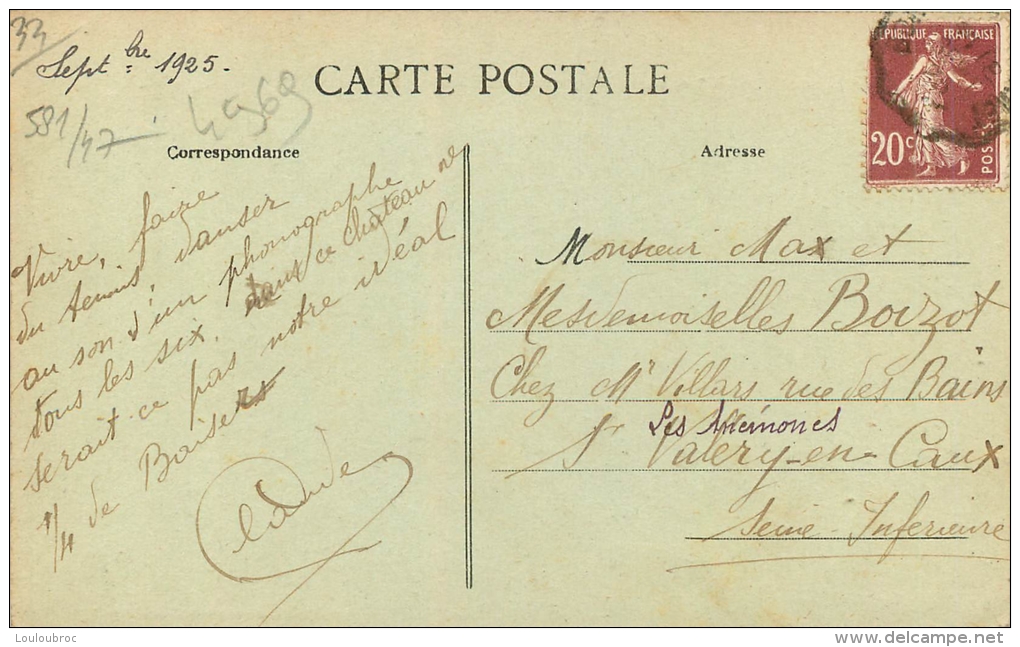 33
Sept.bre 1925.
581/47
4969
CARTE POSTALE
Correspondance
Adresse
RÉPUBLIQUE FRANÇAISE
20c
POSTES
Vivre, faire
du tennis, danser
au son d'un phonographe
tous les six, dans ce château ne
serait-ce pas notre idéal
1/4 de Baisers
Claude
Monsieur Max et
Mesdemoiselles Boizot
Chez Mr Villars rue des Bains
Les Anémones
St Valery-en-Caux
Seine Inférieure
Louloubroc
delcampe.net